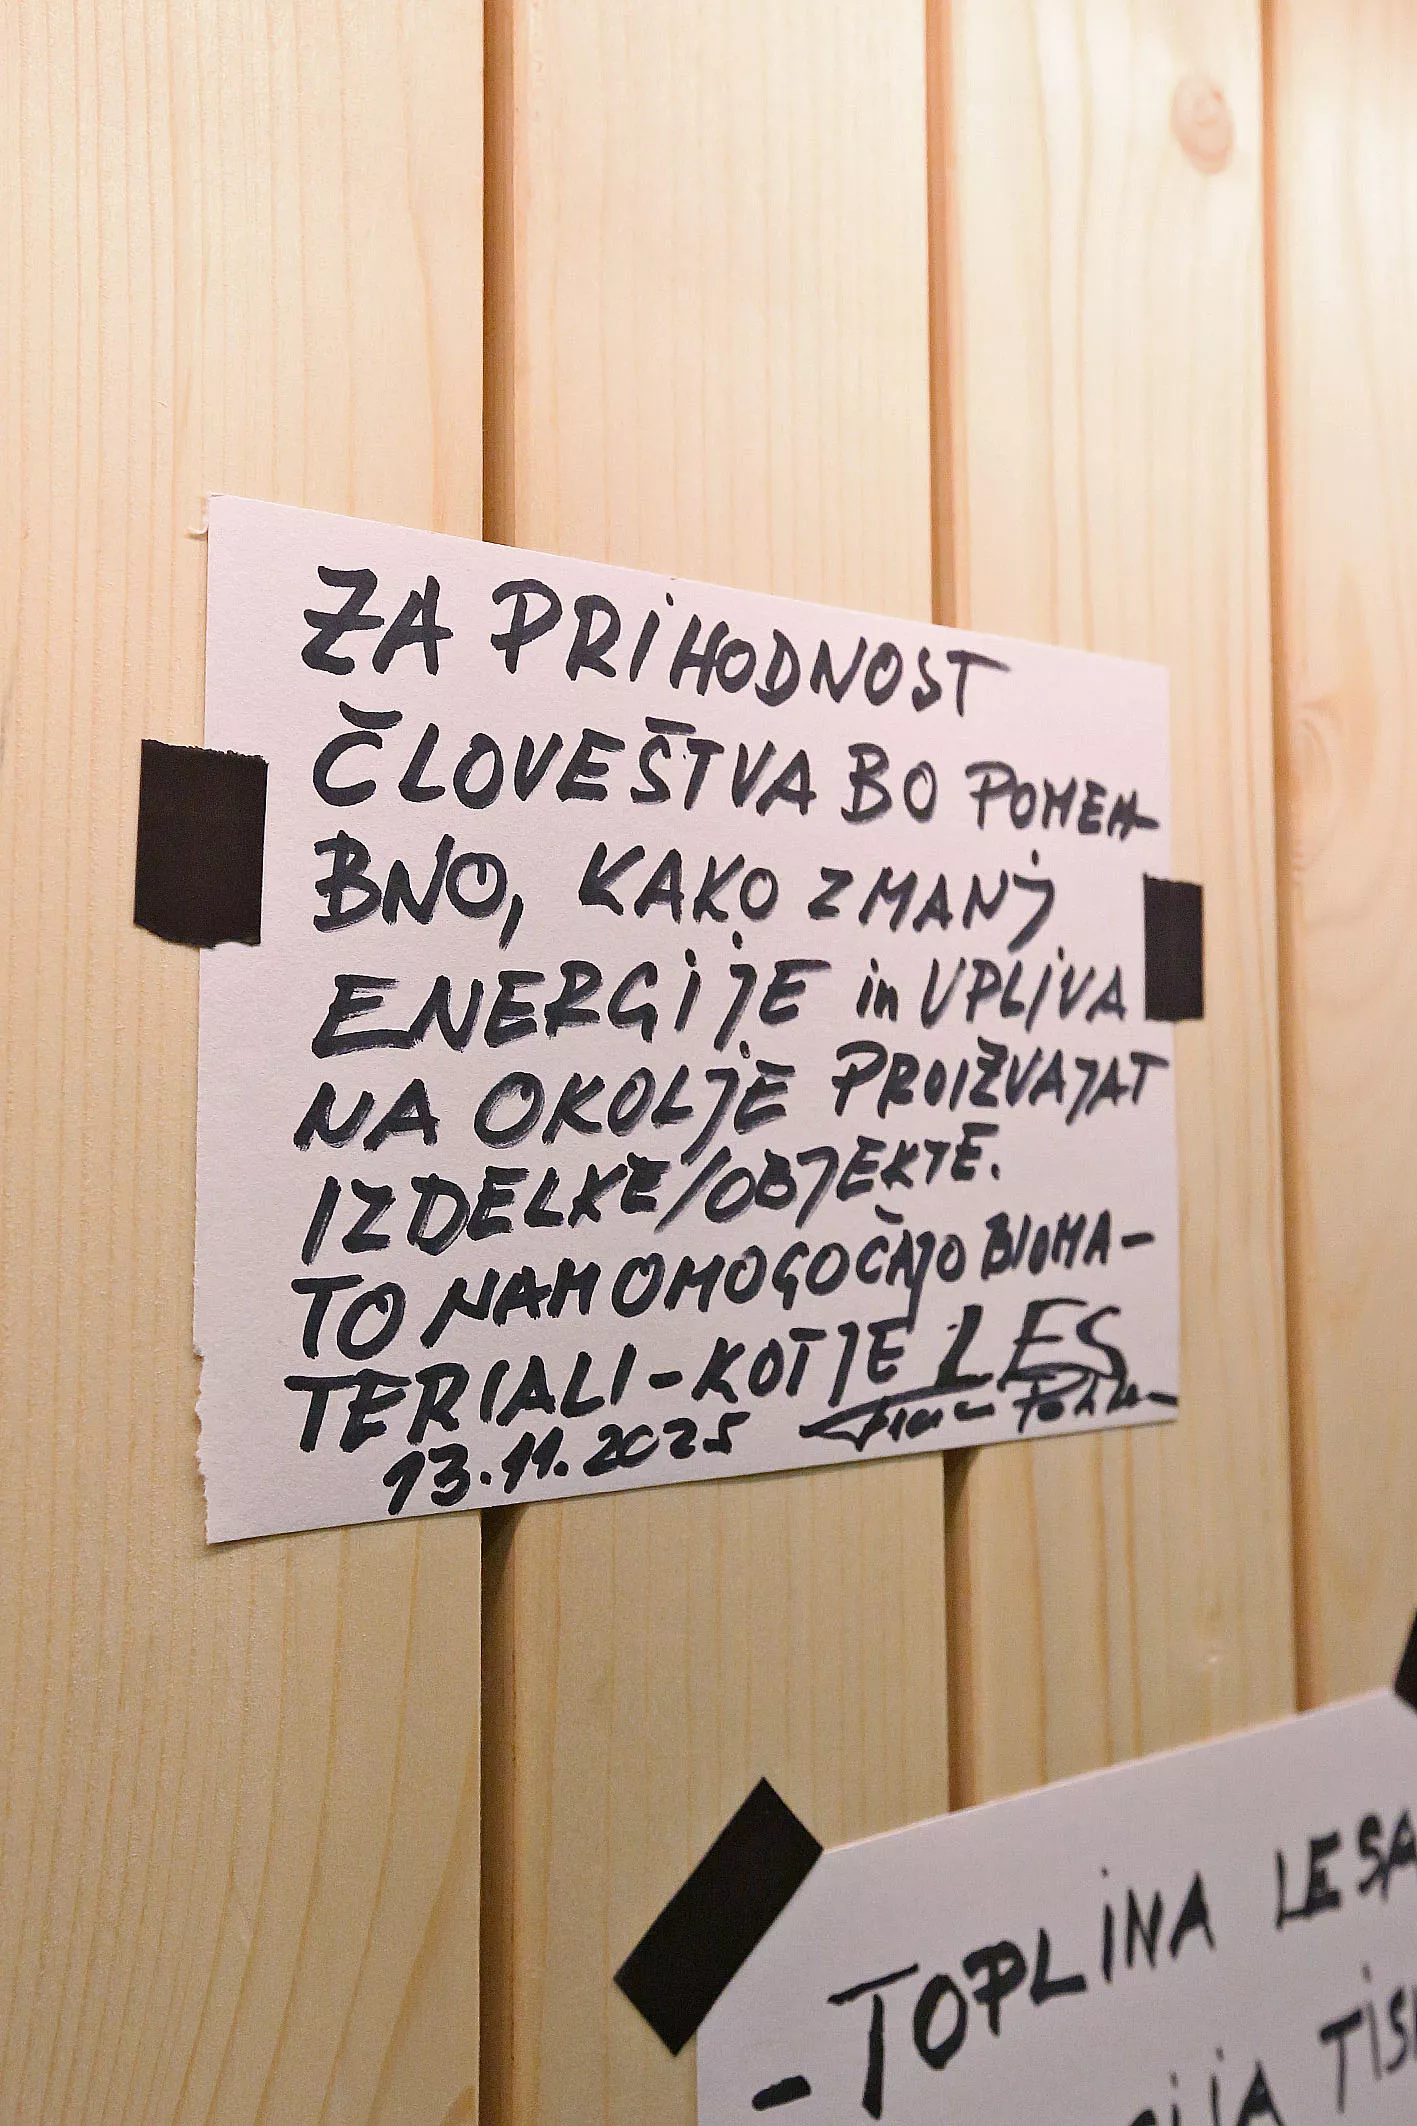 ZA PRIHODNOST
ČLOVEŠTVA BO POMEM-
BNO, KAKO Z MANJ
ENERGIJE in VPLIVA
NA OKOLJE PROIZVAJAT
IZDELKE/OBJEKTE.
TO NAM OMOGOČAJO BIOMA-
TERIALI-KOT JE LES
13.11.2025
- TOPLINA LESA